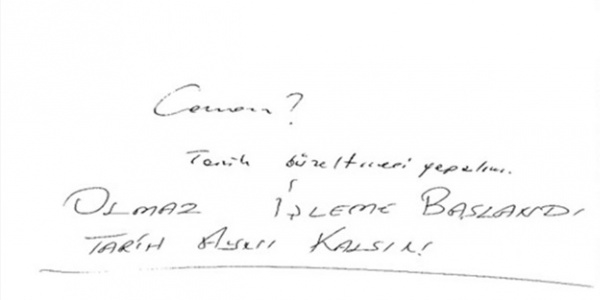 Canan?
Tarih düzeltmesi yapalım.
OLMAZ İŞLEME BAŞLANDI
TARİH AYNI KALSIN!